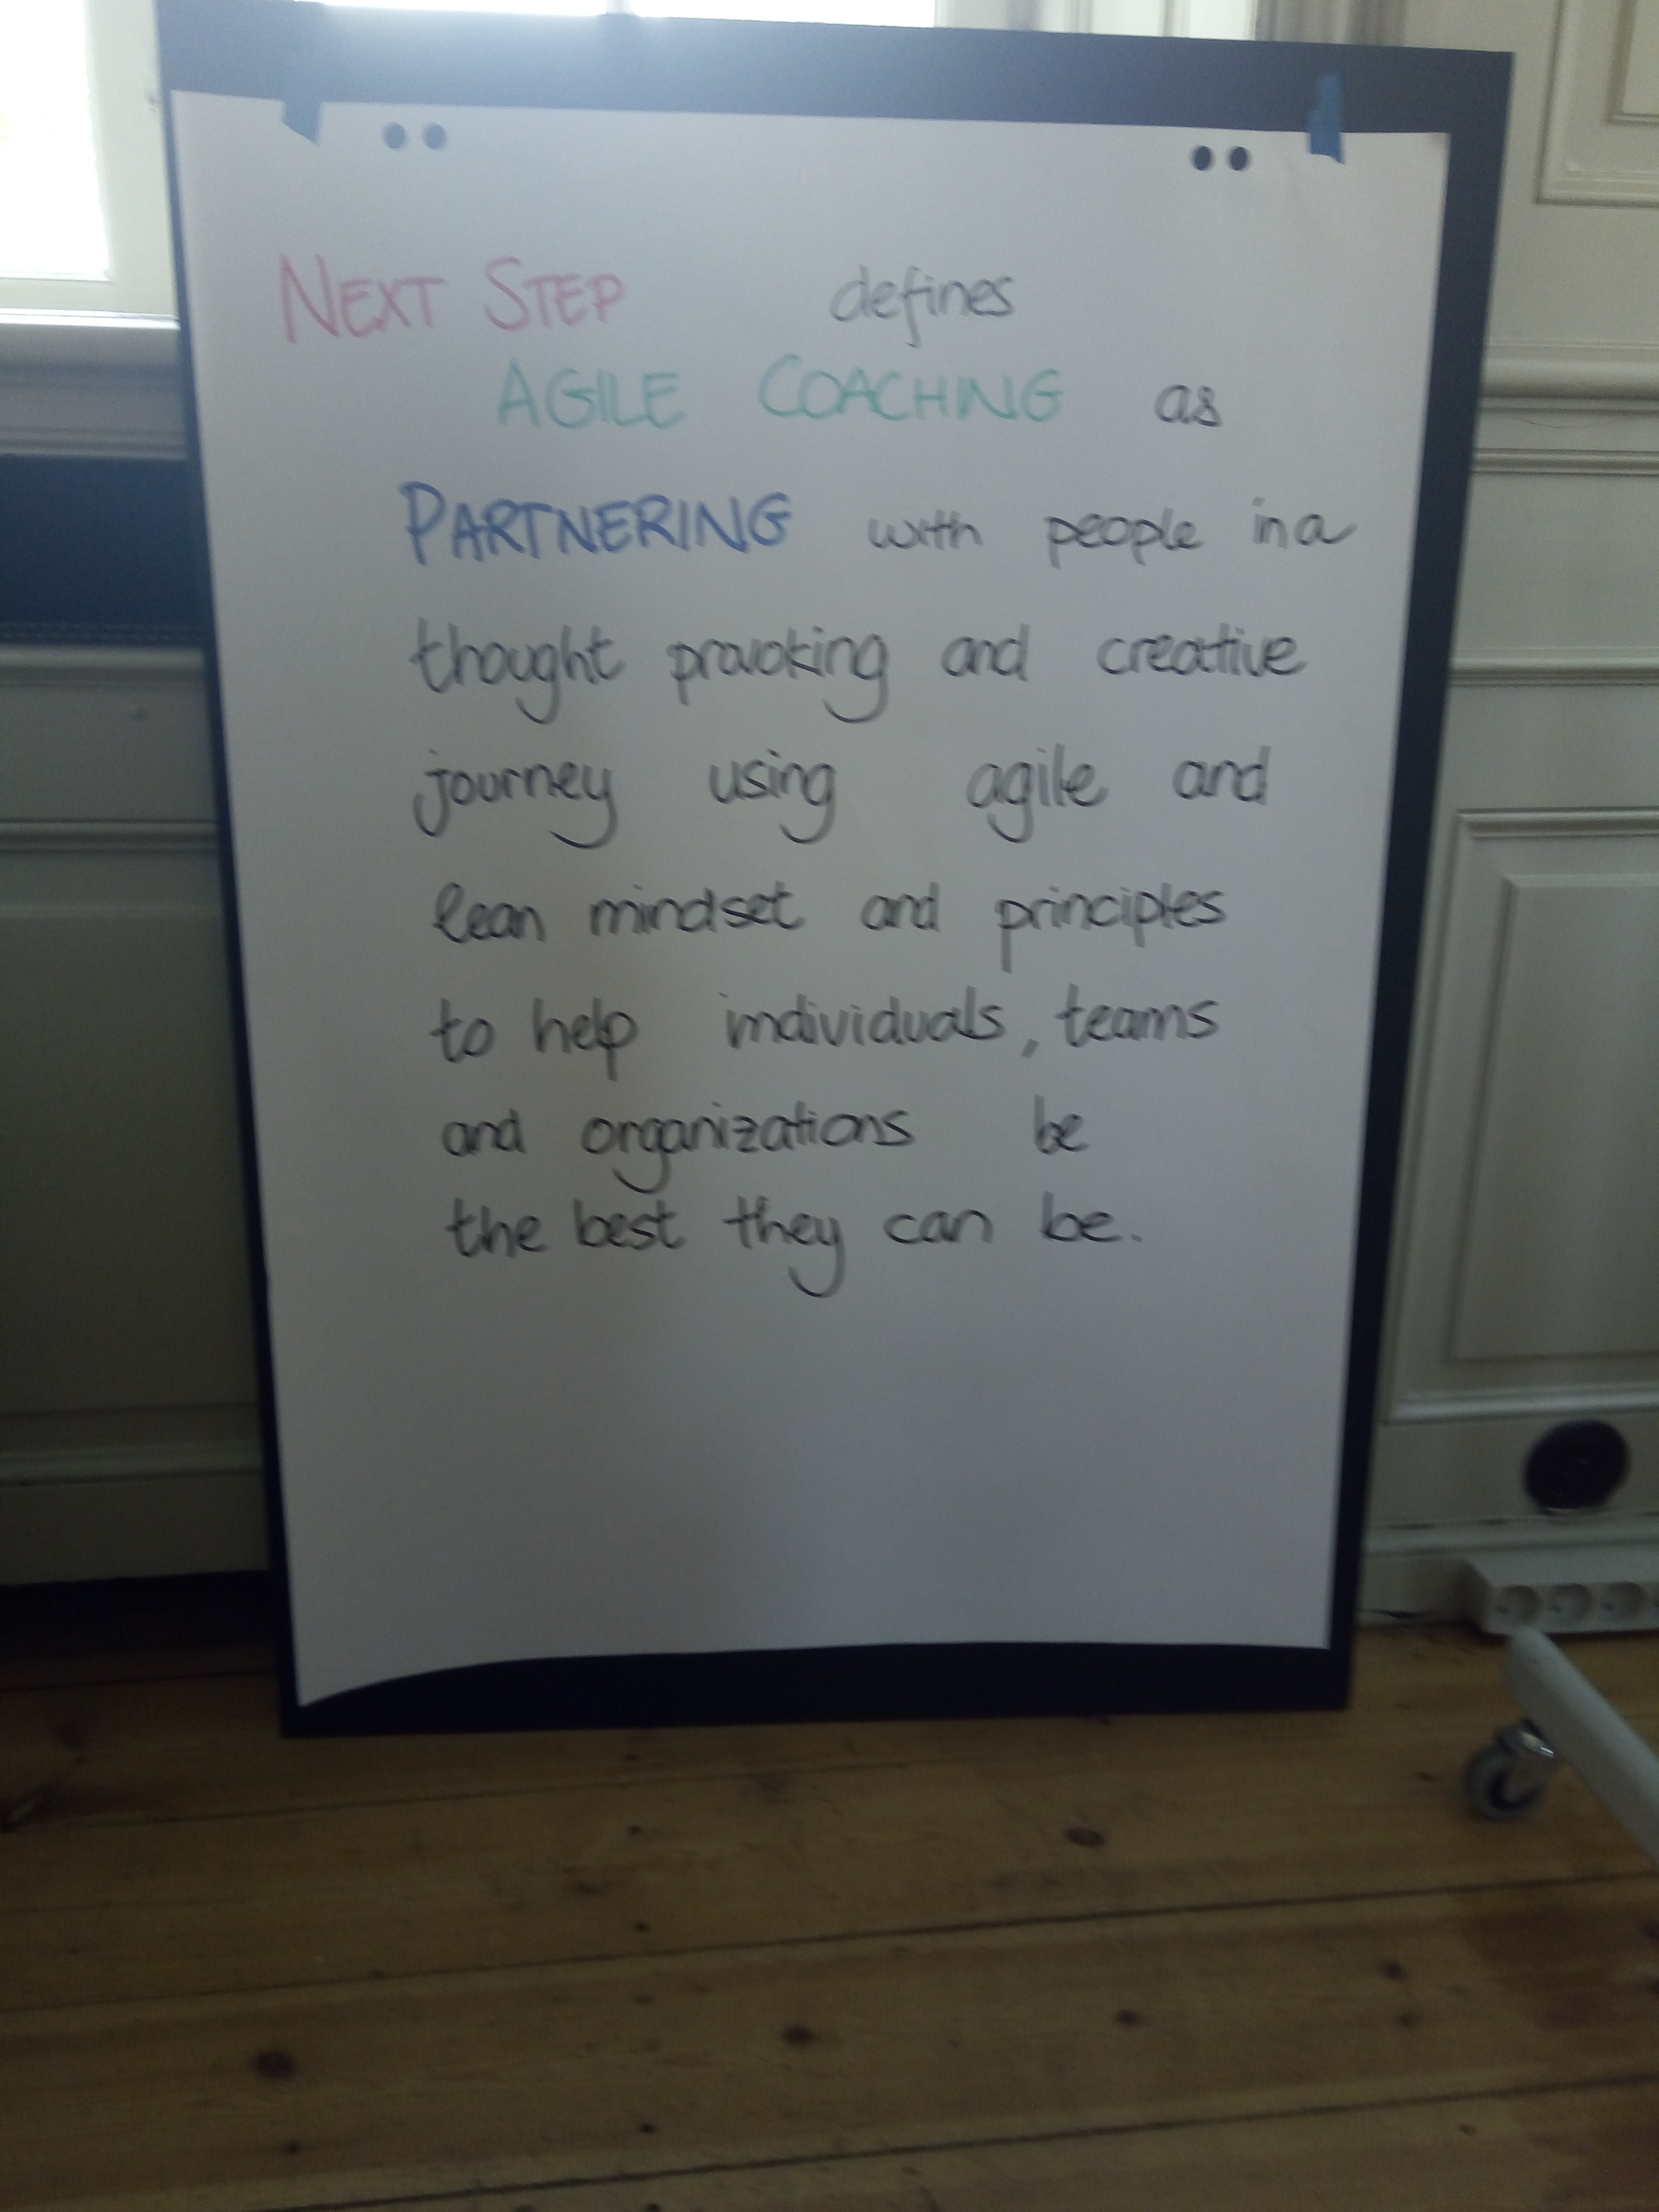 NEXT STEP defines
AGILE COACHING as
PARTNERING with people in a
thought provoking and creative
journey using agile and
lean mindset and principles
to help individuals, teams
and organizations be
the best they can be.